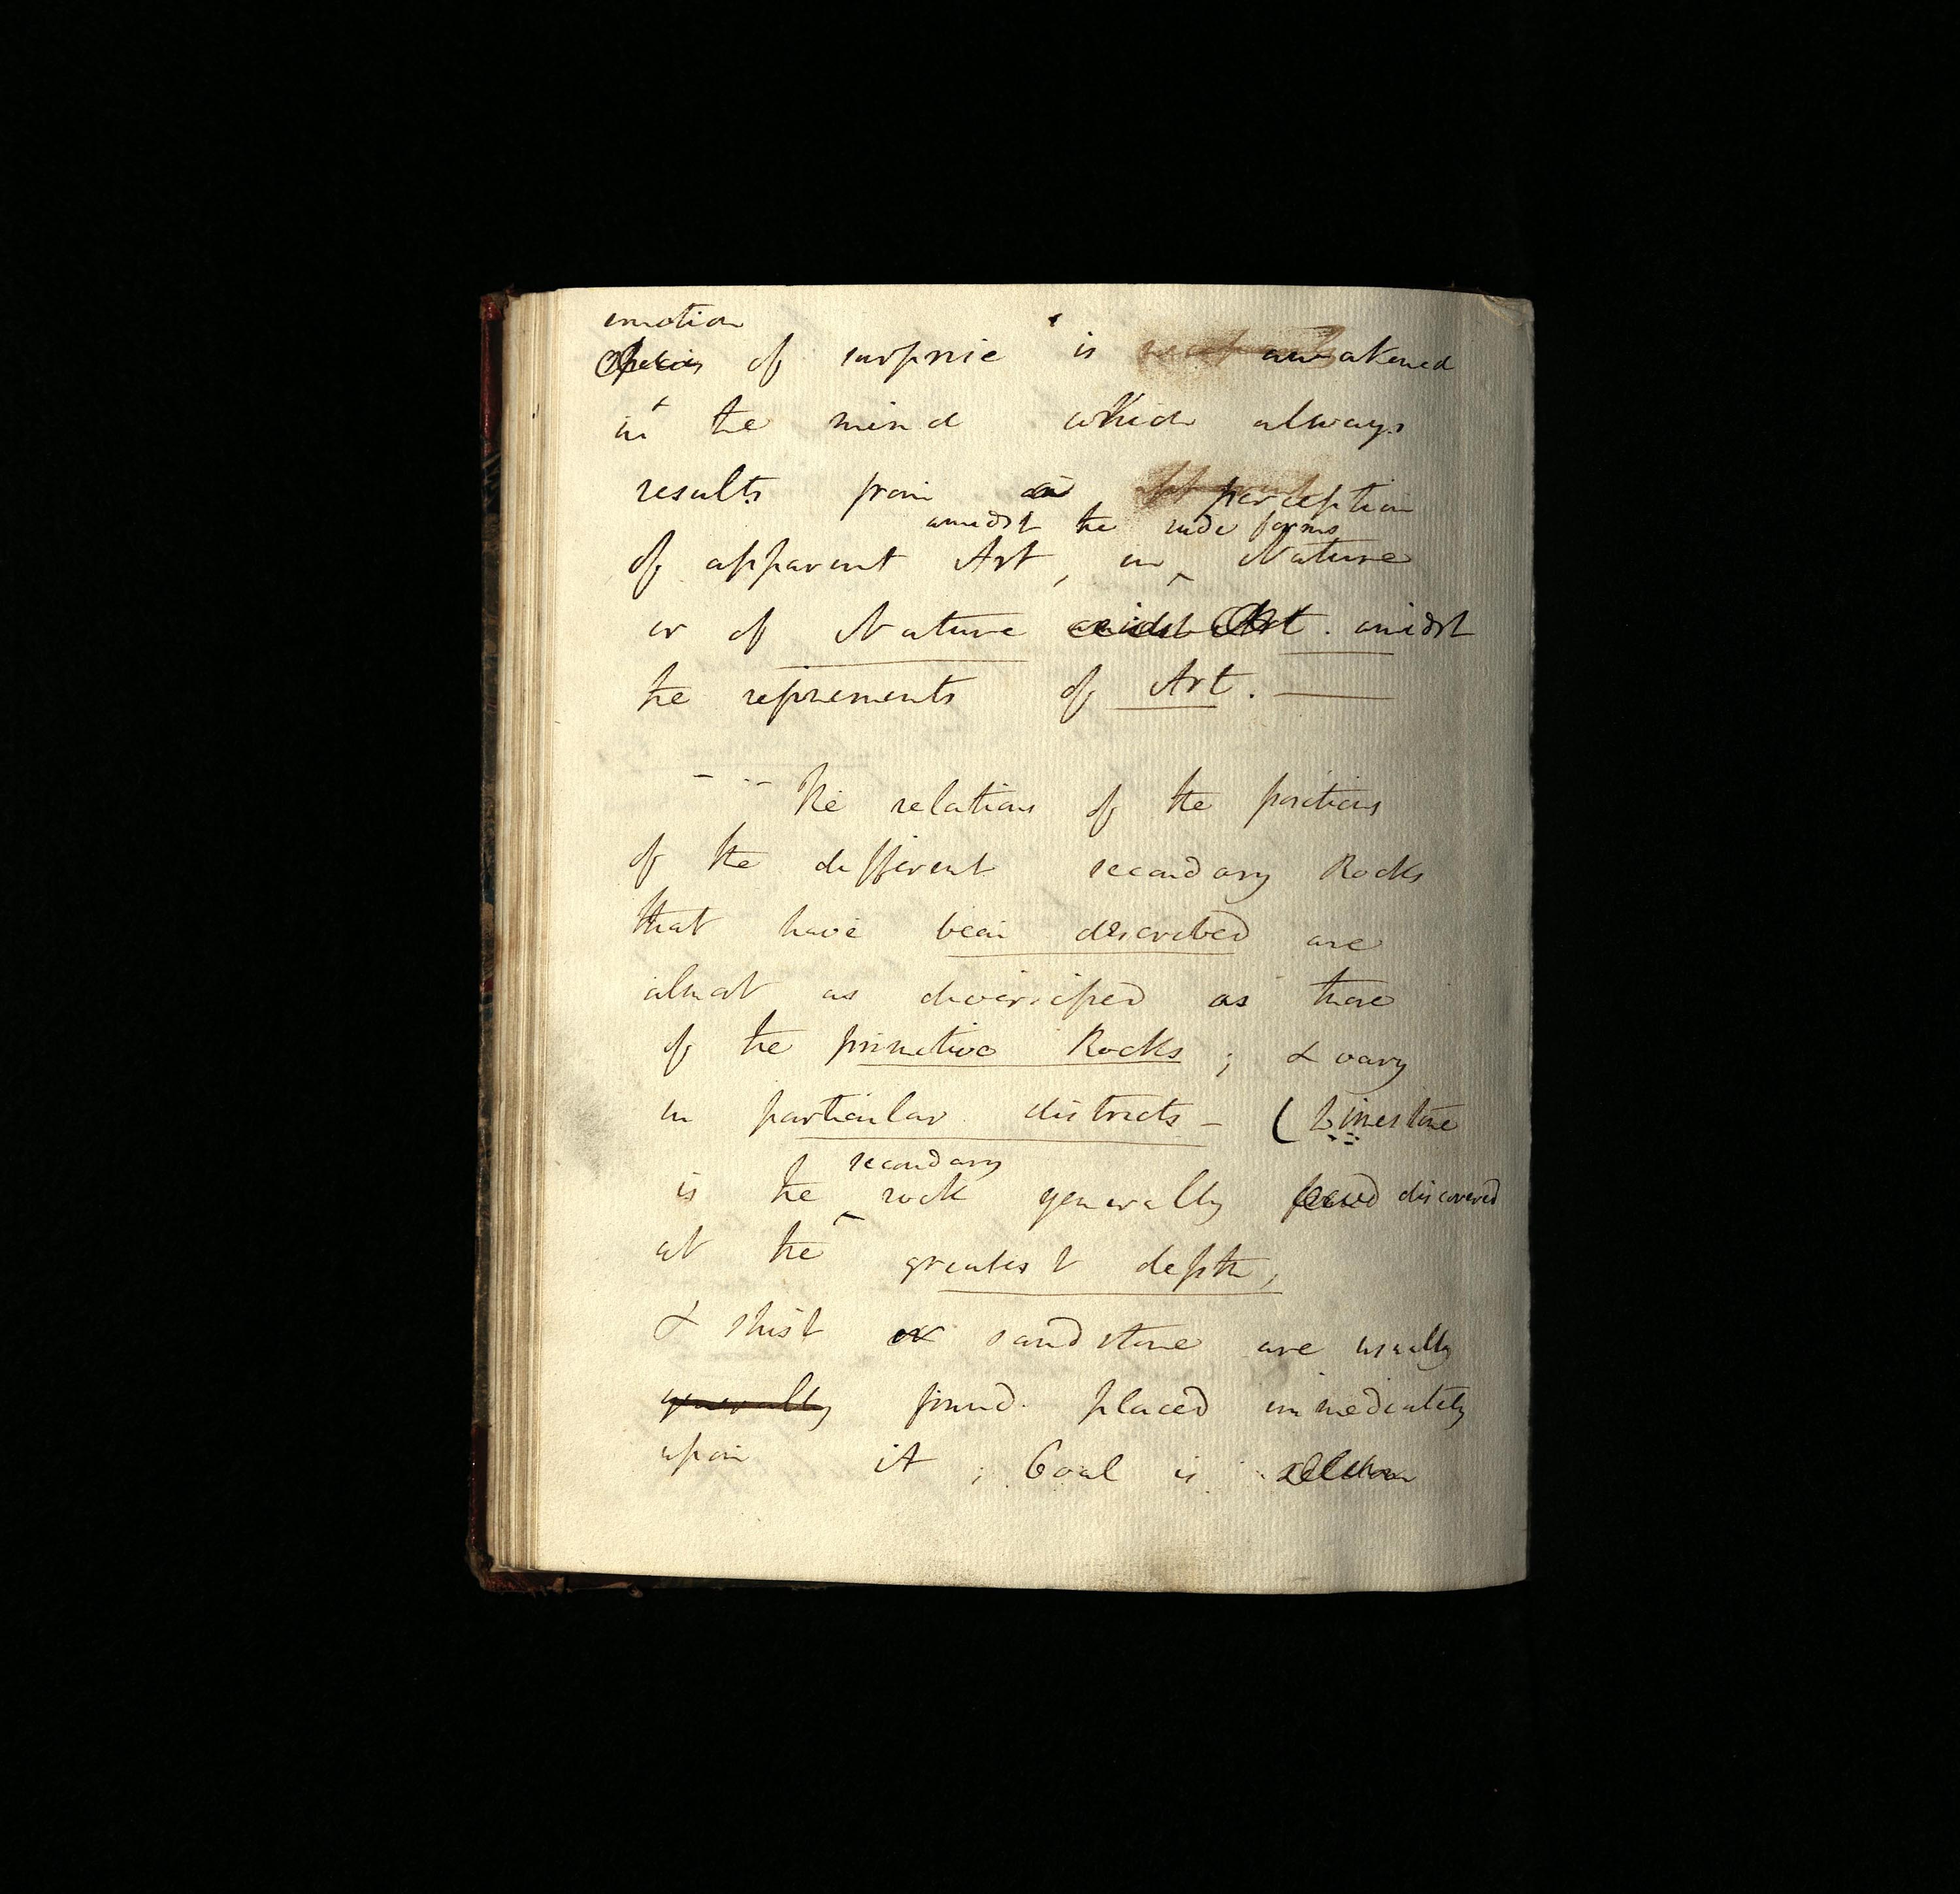 emotion
species of surprise is awakened
in the mind which always
results from perception
amidst the rude forms
of apparent Art, in Nature
or of Nature amidst Art. amidst
the refinements of Art. —
- -- The relations of the positions
of the different secondary Rocks
that have been described are
almost as diversified as those
of the primitive Rocks; & vary
in particular districts - (Limestone
secondary
is the rock generally found discovered
at the greatest depth,
& shist or sandstone are usually
generally found placed immediately
upon it; Coal is seldom